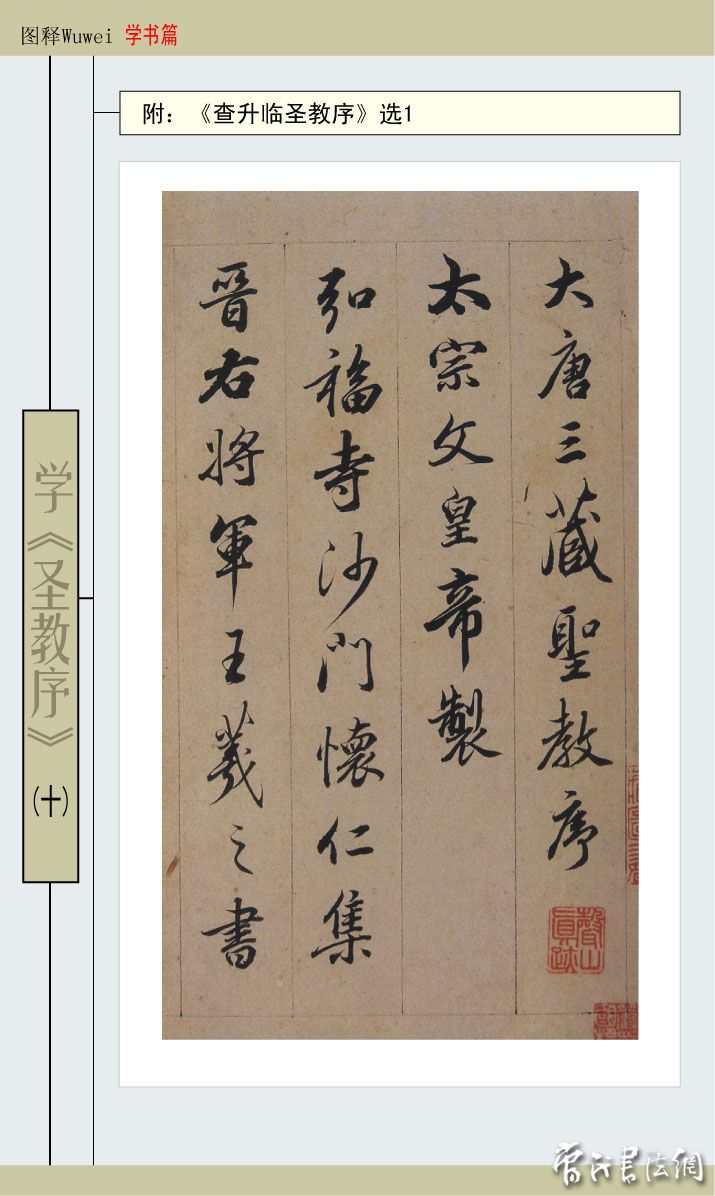 图释Wuwei 学书篇
附：《查升临圣教序》选1
学《圣教序》(十)
大唐三藏聖教序
太宗文皇帝製
弘福寺沙門懷仁集
晉右將軍王羲之書
聲山真跡